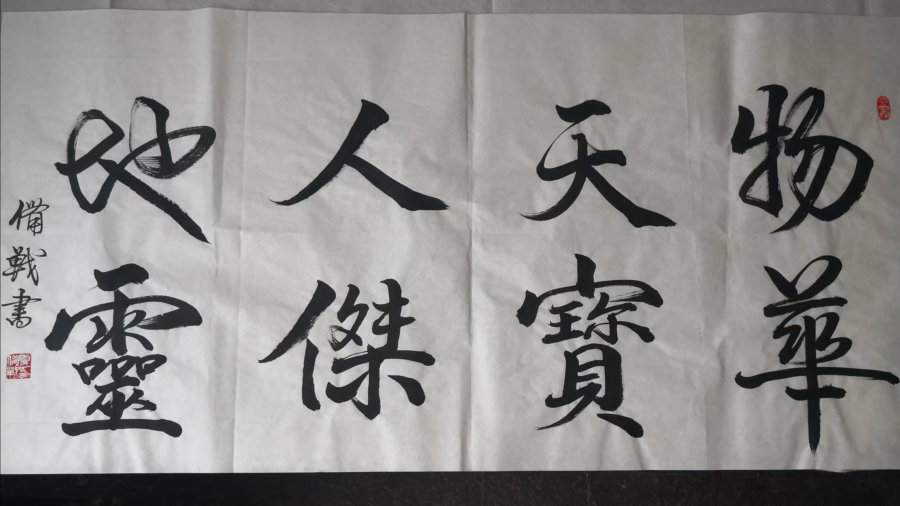 物華
天寶
人傑
地靈
備戰書